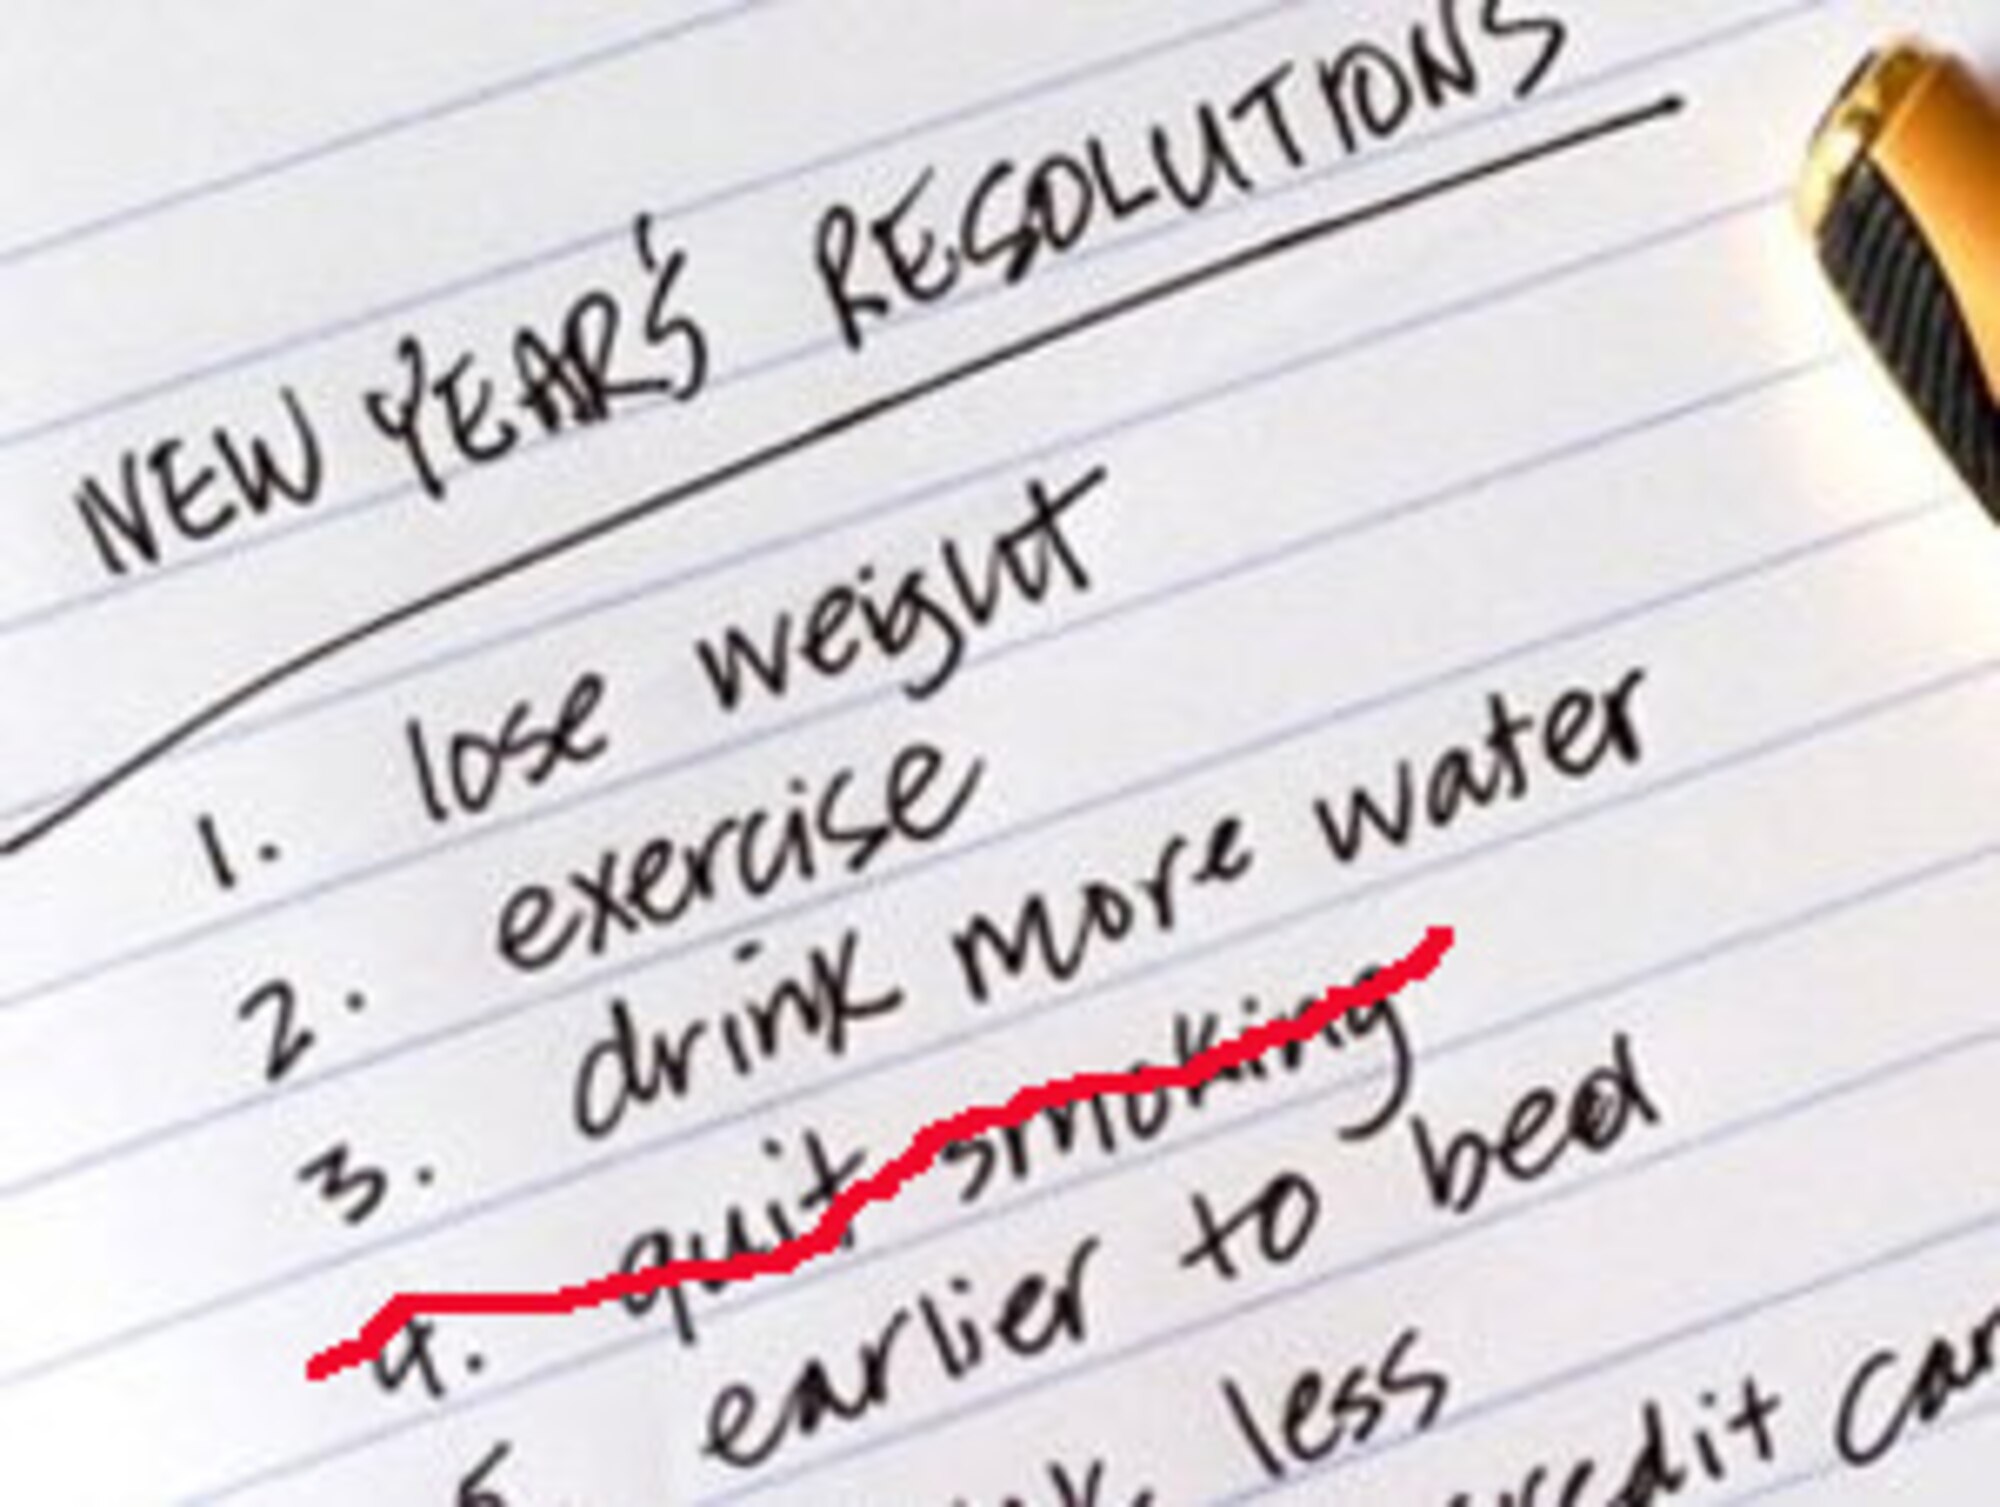 NEW YEAR'S RESOLUTIONS
1. lose weight
2. exercise
3. drink more water
4. quit smoking
5. earlier to bed
less
credit